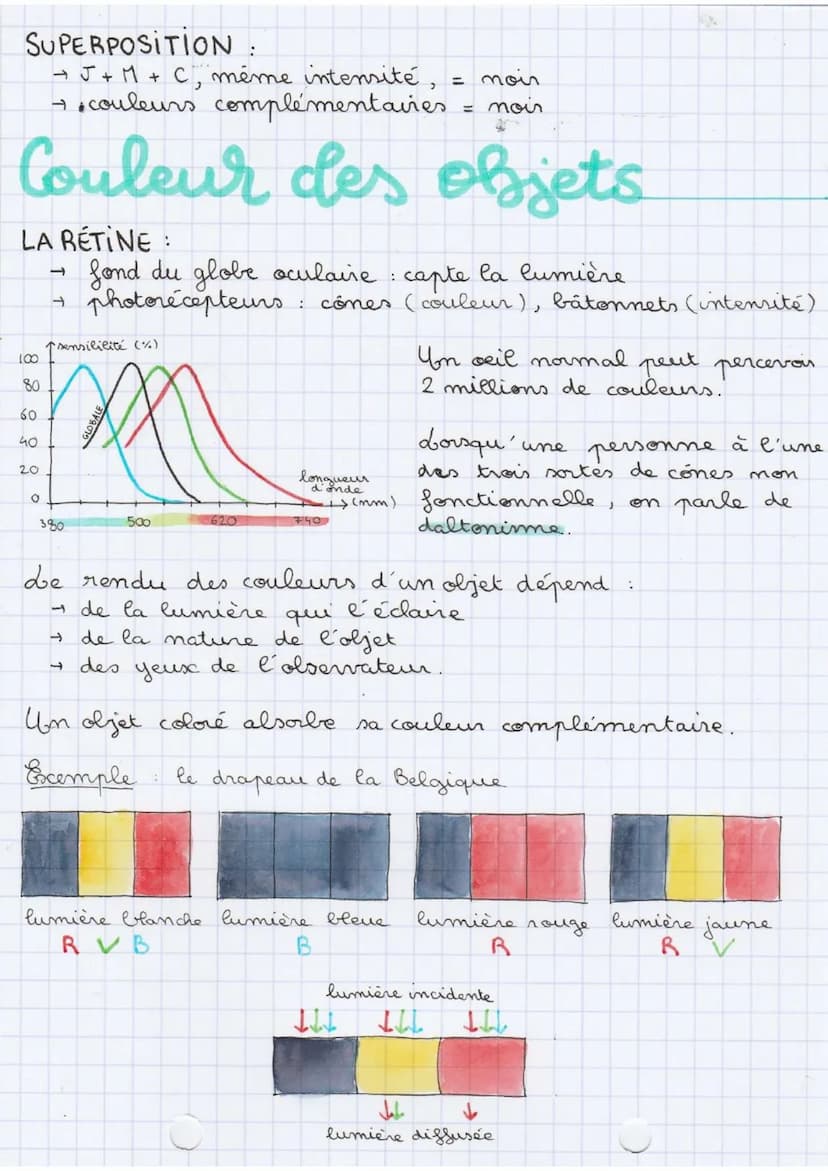 SUPERPOSITION :
→ J + M + C, même intensité, = noir
→ • couleurs complémentaires = noir
Couleur des objets
LA RÉTINE :
→ fond du globe oculaire : capte la lumière
→ photorécepteurs : cônes (couleur), bâtonnets (intensité)
sensibilité (%)
100
80
60
40
20
0
GLOBALE
longueur
d'onde
(nm)
380 500 620 740
Un oeil normal peut percevoir
2 millions de couleurs.
Lorsqu'une personne à l'une
des trois sortes de cônes non
fonctionnelle, on parle de
daltonisme.
Le rendu des couleurs d'un objet dépend :
→ de la lumière qui l'éclaire
→ de la nature de l'objet
→ des yeux de l'observateur.
Un objet coloré absorbe sa couleur complémentaire.
Exemple : le drapeau de la Belgique
lumière blanche lumière bleue lumière rouge lumière jaune
R V B B R R V
lumière incidente
lumière diffusée